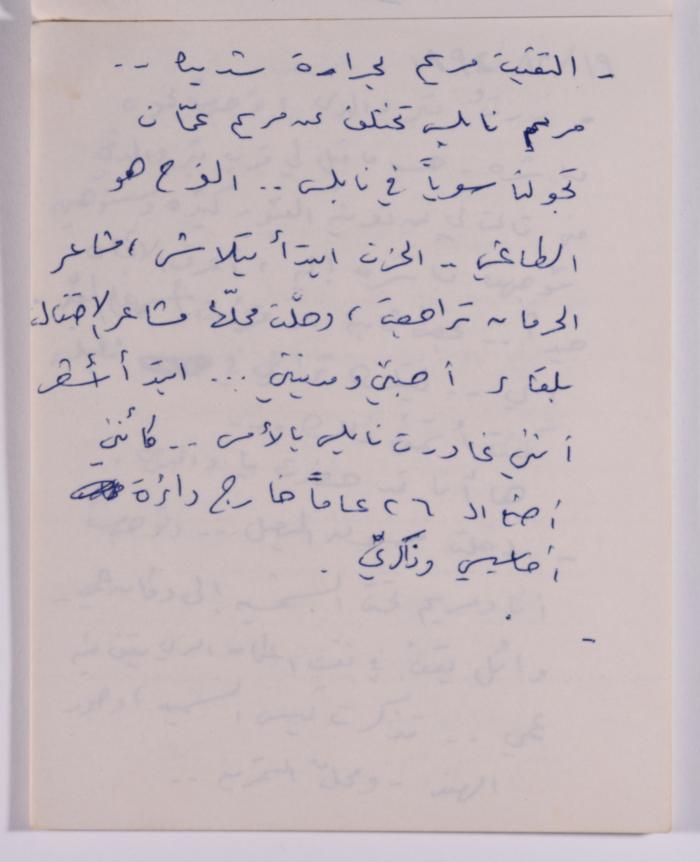 - التقيت مريم بحرارة شديدة ..
مريم نابلس تختلف عن مريم عمّان
تجولنا سوياً في نابلس .. الفرح هو
الطاغي .. الحزن ابتدأ يتلاشى، مشاعر
الحرمان تراجعت، وحلّت محلّها مشاعر الاحتفال
بلقاء أحبتي ومدينتي ... ابتدأ أشعر
أنني غادرت نابلس بالأمس .. كأنني
أضع الـ ٢٦ عاماً خارج دائرة
أحاسيسي وذاكرتي .
-